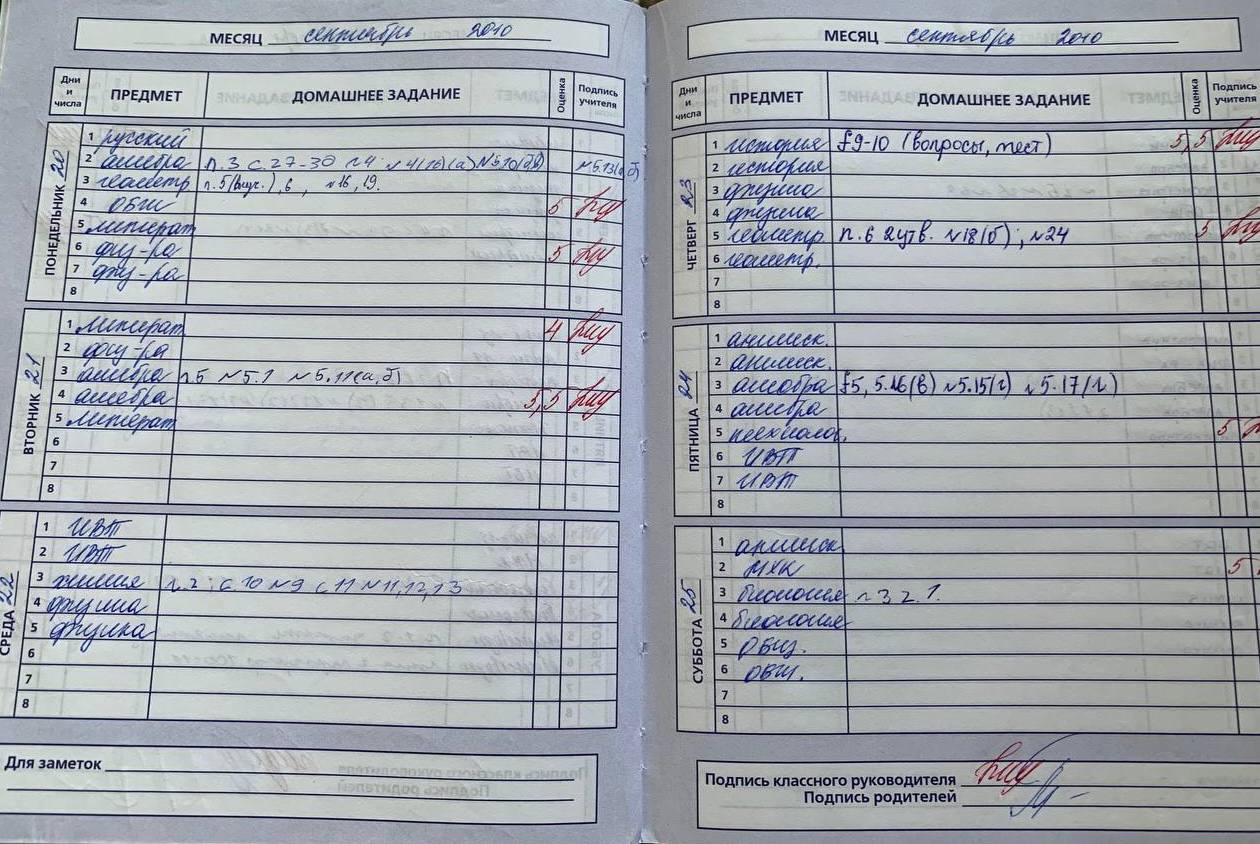 МЕСЯЦ сентябрь 2010
Дни и числа ПРЕДМЕТ ДОМАШНЕЕ ЗАДАНИЕ Оценка Подпись учителя
ПОНЕДЕЛЬНИК 20
1 русский
2 алгебра п.3 с.27-30 №5.13(
3 геометр п.5 6, №16, 19.
4 ОБЖ 5
5 литерат
6 физ-ра 5
7 физ-ра
8
ВТОРНИК 21
1 литерат 4
2 физ-ра
3 алгебра п.5 №5.1 №5.11(а,б)
4 алгебра 5,5
5 литерат
6
7
8
СРЕДА 22
1 ИВТ
2 ИВТ
3 химия п.2; с.10 №9 с.11 №11,12,13
4 физика
5 физика
6
7
8
Для заметок
МЕСЯЦ сентябрь 2010
Дни и числа ПРЕДМЕТ ДОМАШНЕЕ ЗАДАНИЕ Оценка Подпись учителя
ЧЕТВЕРГ 23
1 история §9-10 (вопросы, тест) 5,5
2 история
3 физика
4 физика
5 геометр. п.6 2 утв. №18(б); №24 5
6 геометр.
7
8
ПЯТНИЦА 24
1 английск.
2 английск.
3 алгебра §5, 5.16(в) №5.15(г) №5.17(г)
4 алгебра
5 технолог. 5
6 ИВТ
7 ИВТ
8
СУББОТА 25
1 английск
2 МХК 5
3 биология п3 z.1.
4 биология
5 общ.
6 общ.
7
8
Подпись классного руководителя
Подпись родителей